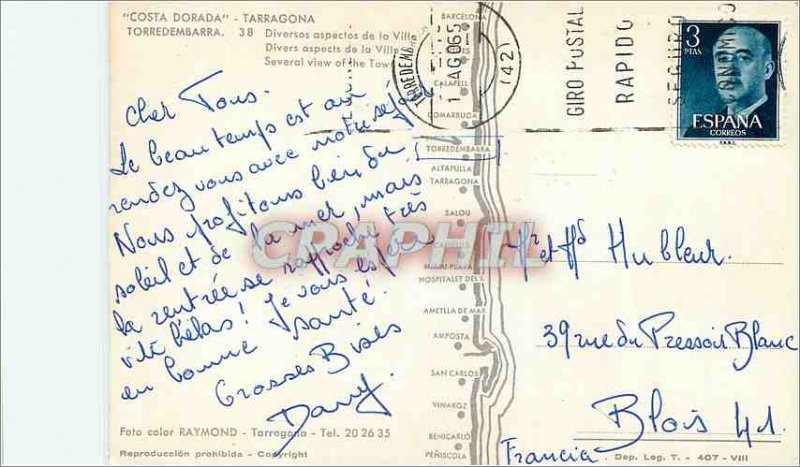 "COSTA DORADA" - TARRAGONA
TORREDEMBARRA. 38 Diversos aspectos de la Villa
Divers aspects de la Ville
Several view of the Town
Cher Tous.
Le beau temps est au
rendez vous avec notre séjour
Nous profitons bien du
soleil et de la mer, mais
la rentrée se rapproche très
vite hélas! Je vous espère
en bonne santé.
Grosses Bises
Dany.
Foto color RAYMOND - Tarragona - Tel. 20 26 35
Reproducción prohibida - Copyright
BARCELONA
CALAFELL
COMARRUGA
TORREDEMBARRA
ALTAFULLA
TARRAGONA
SALOU
CAMBRILS
MIAMI-PLAYA
HOSPITALET DEL I.
AMETLLA DE MAR
AMPOSTA
SAN CARLOS
VINAROZ
BENICARLO
PEÑISCOLA
TORREDEMB
AGO65
(42)
GIRO POSTAL
RAPIDO
SEGURO
3
PTAS
ESPAÑA
CORREOS
Mr et Md Hubleur.
39 rue du Pressoir Blanc
Blois 41.
Francia
Dep. Leg. T. - 407 - VIII
CRAPHIL